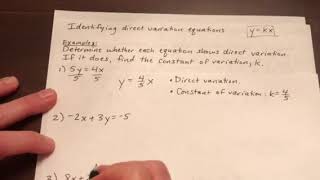 Identifying direct variation equations
y=kx
Examples:
Determine whether each equation shows direct variation.
If it does, find the constant of variation, k.
1) 5y = 4x
5 5
y = 4/5 x
• Direct variation
• Constant of variation: k = 4/5
2) -2x + 3y = -5
3) 8x